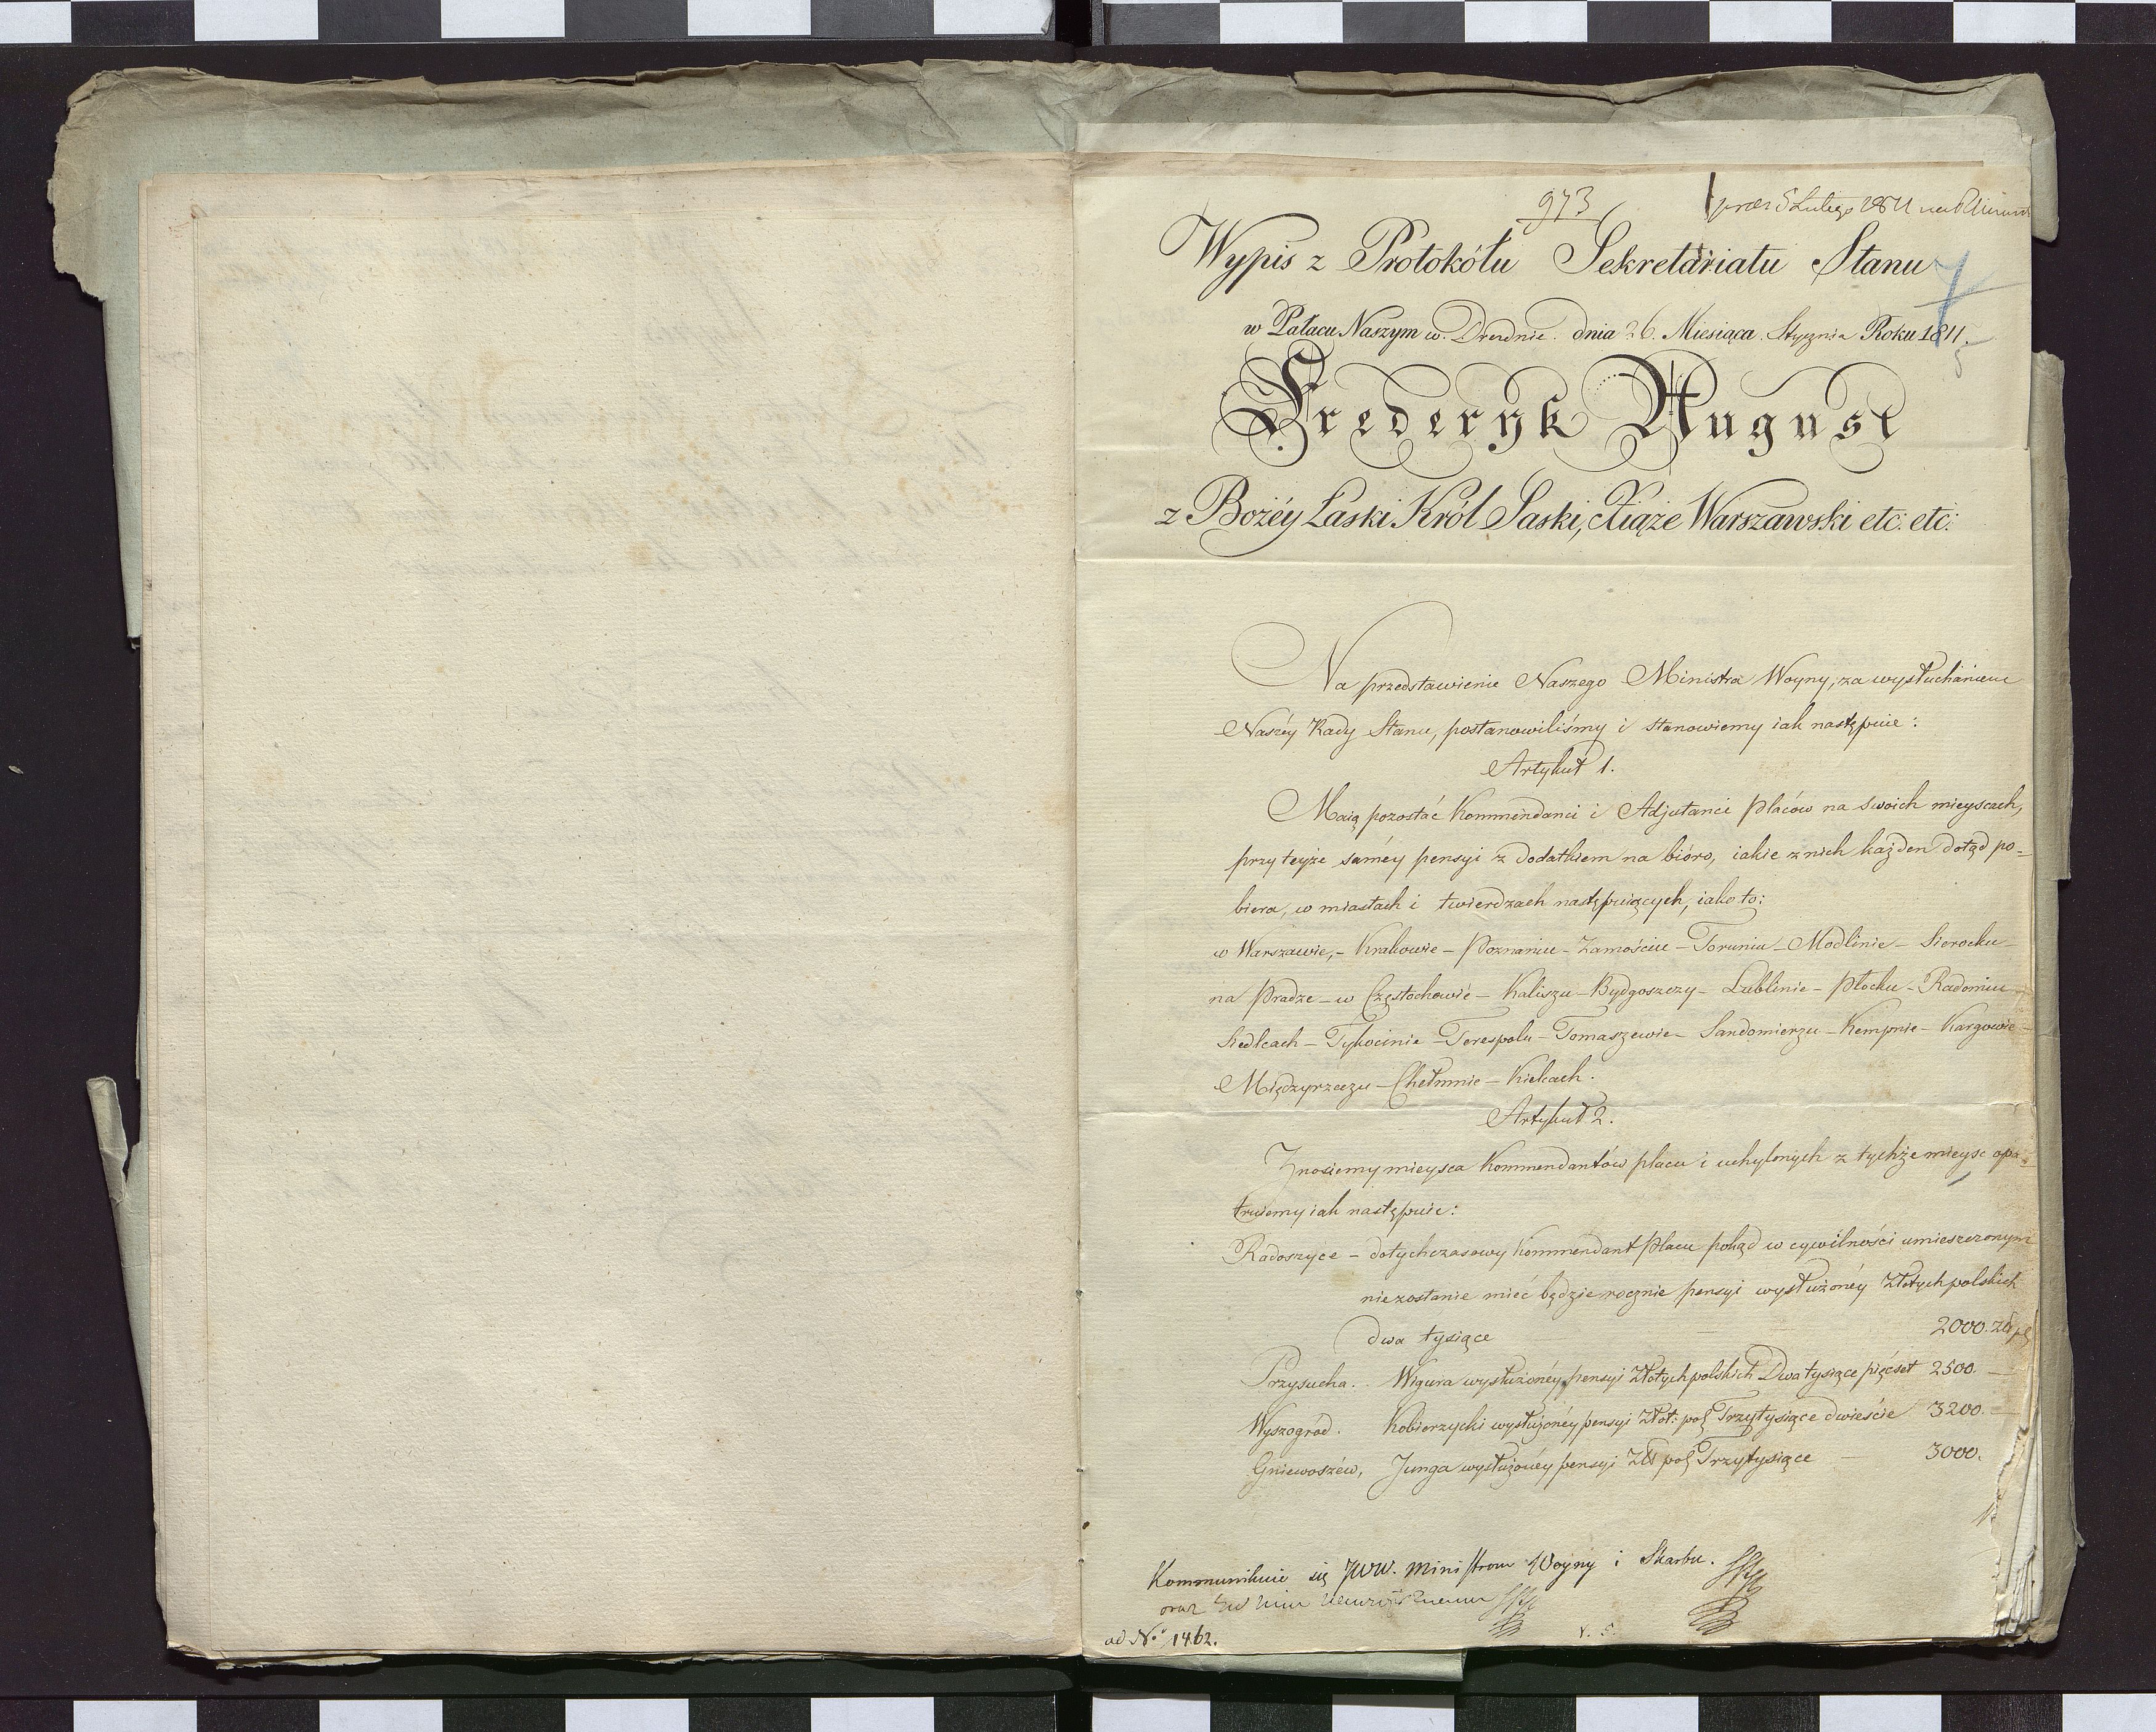 973
5 Lutego 1811
Wypis z Protokółu Sekretariatu Stanu
7
w Pałacu Naszym w Dreźnie. dnia 26. Miesiąca Stycznia Roku 1811.
5
Frederyk August
z Bożéy Łaski Król Saski, Xiąże Warszawski etc: etc:
Na przedstawienie Naszego Ministra Woyny, za wysłuchaniem
Naszéy Rady Stanu, postanowiliśmy i stanowiemy iak następuie:
Artykuł 1.
Maią pozostać Kommendanci i Adjutanci placów na swoich mieyscach,
przy teyże saméy pensyi z dodatkiem na bióro, iakie z nich każden dotąd po=
biera, w miastach i twierdzach następuiących, iako to:
w Warszawie, - Krakowie - Poznaniu - Zamościu - Toruniu - Modlinie - Sierocku -
na Pradze - w Częstochowié - Kaliszu - Bydgoszczy - Lublinie - Płocku - Radomiu -
Siedlcach - Tykocinie - Terespolu - Tomaszewie - Sandomierzu - Kempnie - Kargowie -
Międzyrzeczu - Chełmnie - Kielcach.
Artykuł 2.
Znosiemy mieysca Kommendantów placu i uchylonych z tychże mieysc opa=
truiemy iak następuie:
Radoszyce - dotychczasowy Kommendant Placu pokąd w cywilności umieszczonym
nie zostanie mieć będzie rocznie pensyi wysłużonéy Złotych polskich
dwa tysiące — — 2000. Złł pol
Przysucha. Wigura wysłużonéy pensyi Złotych polskich Dwa tysiące pięćset 2500. —
Wyszogród. Kobierzycki wysłużonéy pensyi Złot: pol Trzy tysiące dwieście 3200. —
Gniewoszéw, Junga wysłużonéy pensyi Złł pol Trzy tysiące — 3000.
Kommunikuie się JWW. Ministrom Woyny i Skarbu.
oraz
ad No. 1462.